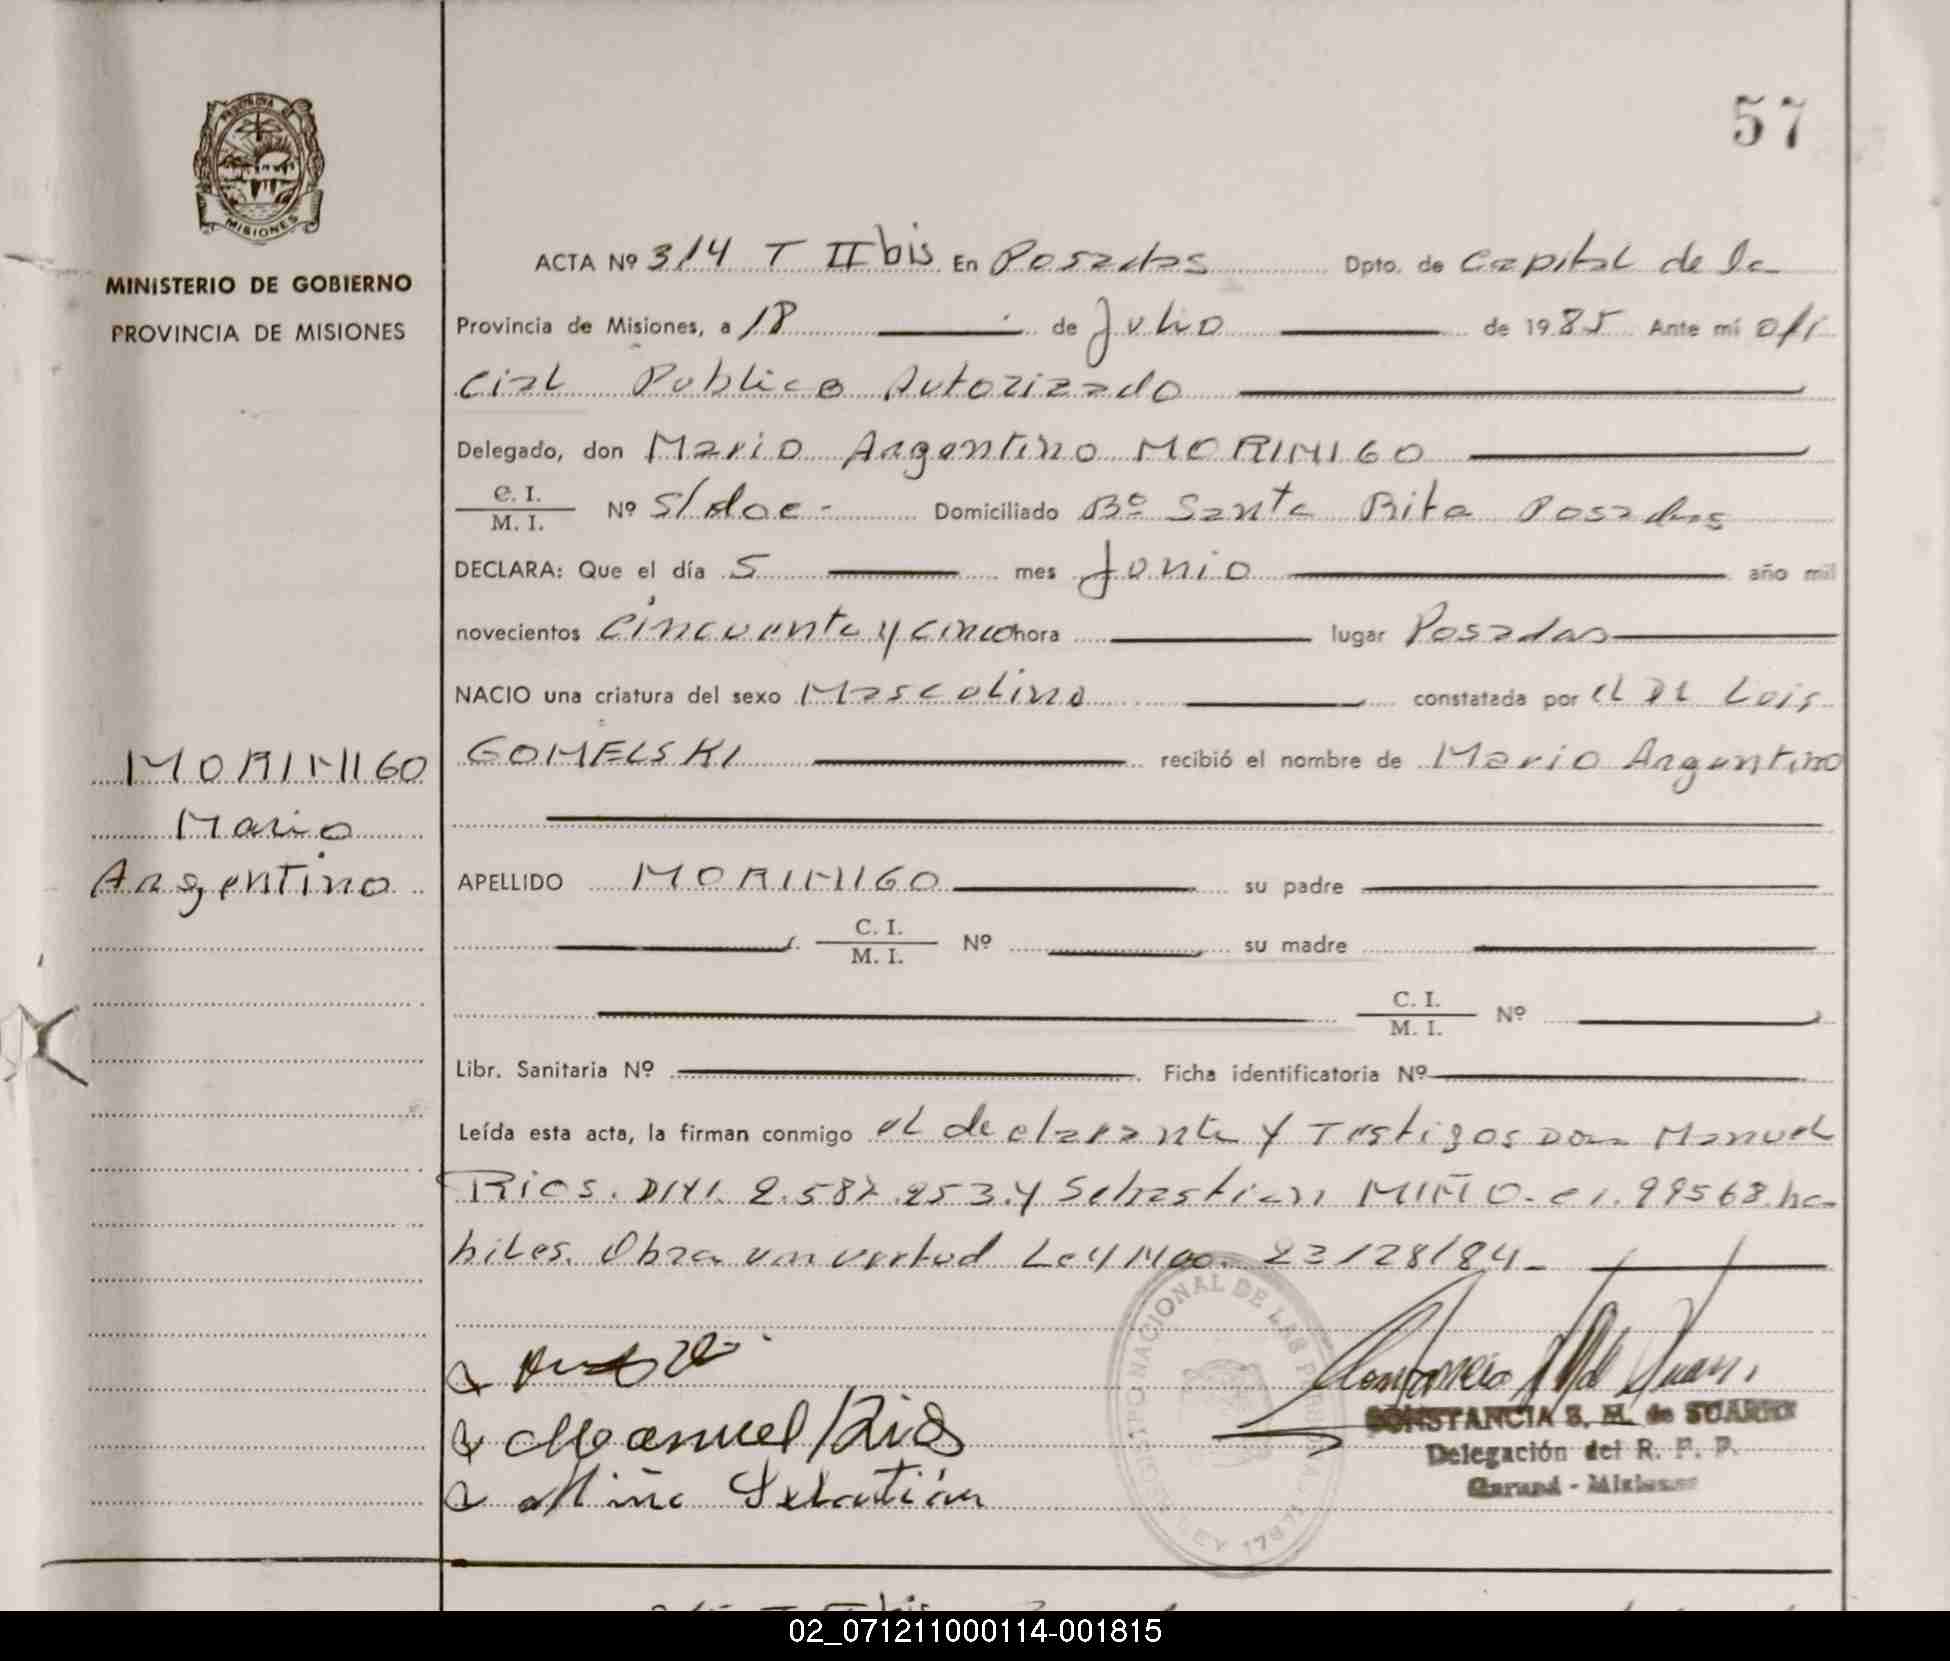 57
PROVINCIA DE
MISIONES
MINISTERIO DE GOBIERNO
PROVINCIA DE MISIONES
ACTA Nº 314 T II bis En Posadas Dpto. de Capital de la
Provincia de Misiones, a 18 de Julio de 1985 Ante mí ofi
cial Publico Autorizado
Delegado, don Mario Argentino MORINIGO
C. I.
M. I. Nº s/doc - Domiciliado Bº Santa Rita Posadas
DECLARA: Que el día 5 mes Junio año mil
novecientos cincuenta y cinco hora lugar Posadas
NACIO una criatura del sexo Masculino constatada por el Dr Luis
GOMELSKI recibió el nombre de Mario Argentino
MORINIGO
Mario
Argentino
APELLIDO MORINIGO su padre
C. I.
M. I. Nº su madre
C. I.
M. I. Nº
Libr. Sanitaria Nº Ficha identificatoria Nº
Leída esta acta, la firman conmigo el declarante y Testigos Don Manuel
Rios. DNI. 2.587.253. y Sebastian MIÑO. C.I. 99568. ha
biles. Obra en virtud Ley Nac. 23128/84
Manuel Rios
Miño Sebastián
CONSTANCIA S. M. de SUAREZ
Delegación del R. P. P.
Garupá - Misiones
REGISTRO NACIONAL DE LAS PERSONAS
LEY 17671
02_071211000114-001815